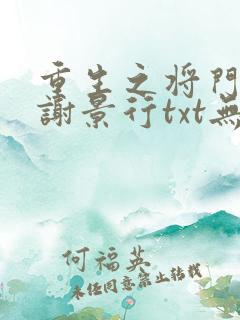 重生之将門
謝景行txt無
何福英
未经同意禁止转载